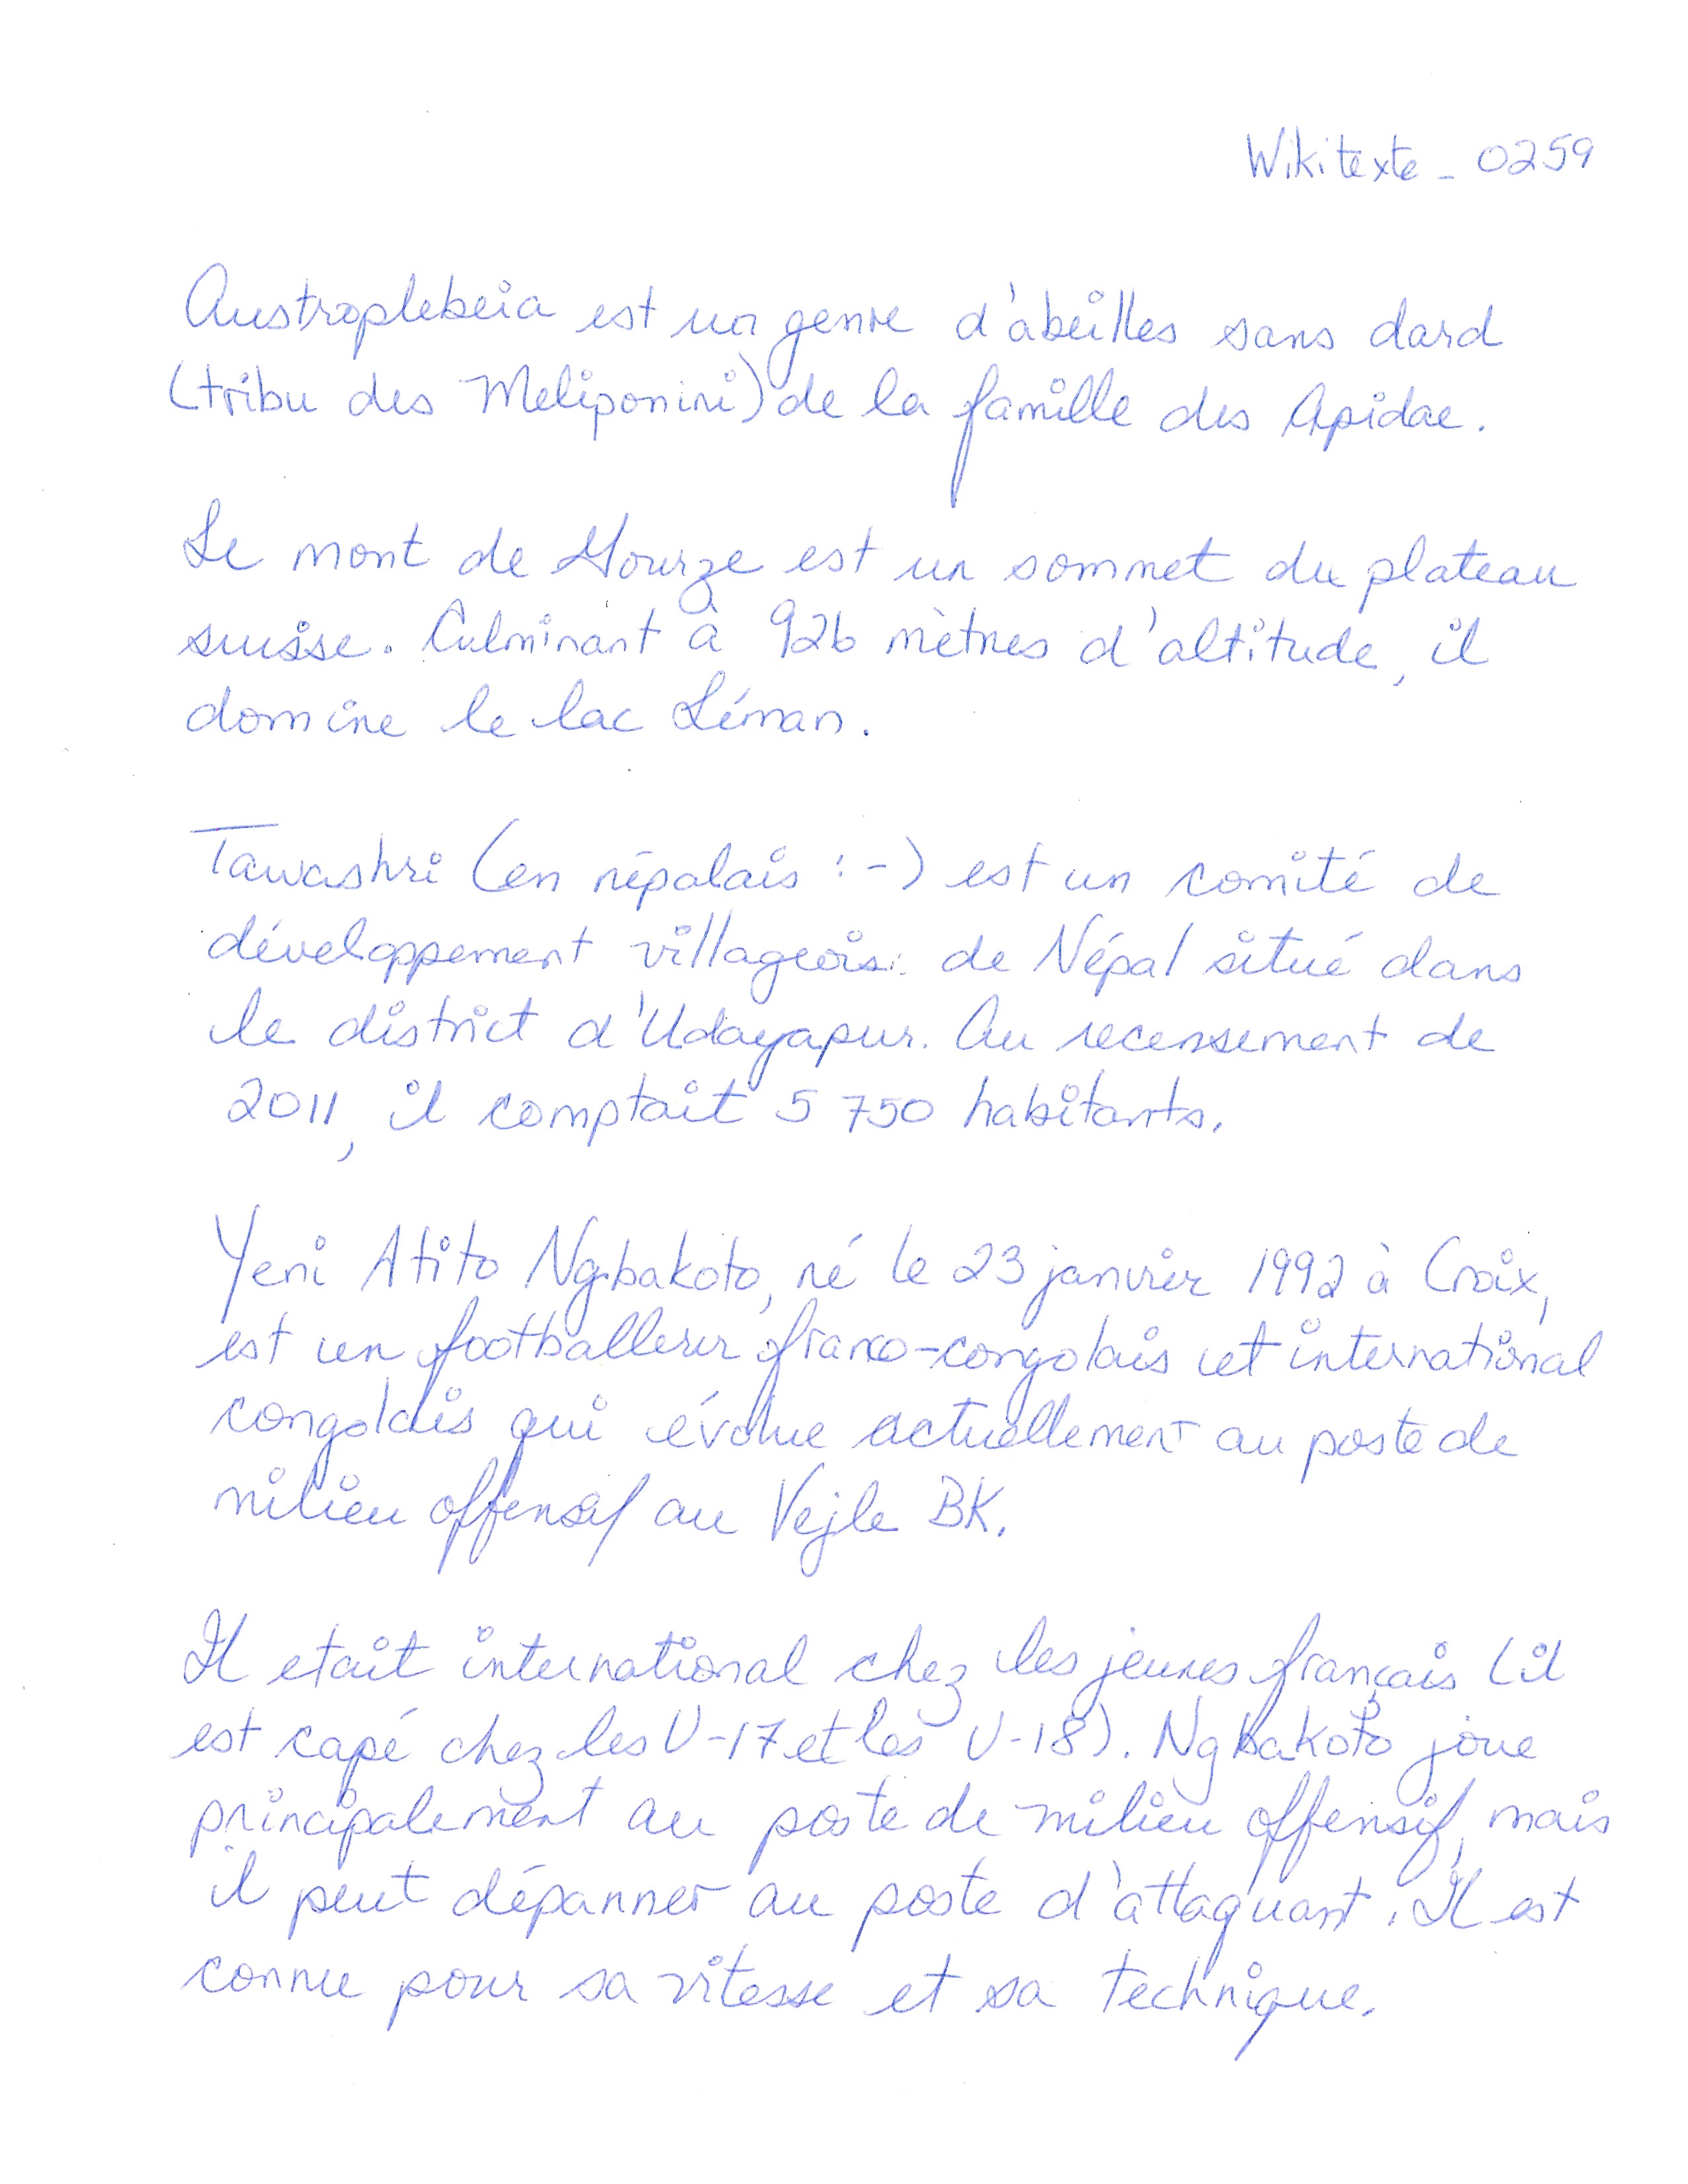 Wikitexte - 0259
Austroplebeia est un genre d'abeilles sans dard
(tribu des Meliponini) de la famille des Apidae.
Le mont de Gourze est un sommet du plateau
suisse. Culminant à 926 mètres d'altitude, il
domine le lac Léman.
Tawashri (en népalais : -) est un comité de
développement villageois de Népal situé dans
le district d'Udayapur. Au recensement de
2011, il comptait 5 750 habitants.
Yeni Atito Ngbakoto, né le 23 janvier 1992 à Croix,
est un footballeur franco-congolais et international
congolais qui évolue actuellement au poste de
milieu offensif au Vejle BK.
Il etait international chez les jeunes français (il
est capé chez les U-17 et les U-18). Ngbakoto joue
principalement au poste de milieu offensif, mais
il peut dépanner au poste d'attaquant. Il est
connu pour sa vitesse et sa technique.